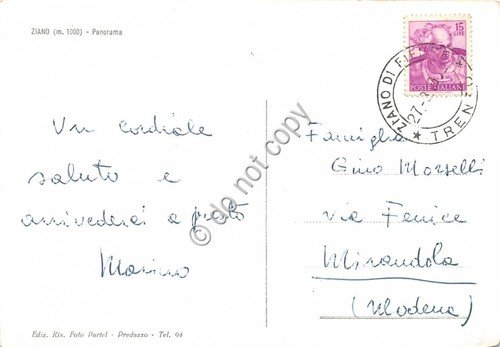 ZIANO (m. 1000) - Panorama
15
LIRE
POSTE ITALIANE
ZIANO DI FIEMME
27-
★ TRENTO ★
Un cordiale
saluto e
arrivederci a presto
Marino
Famiglia
Gino Morselli
via Fenice
Mirandola
(Modena)
do not copy
Ediz. Ris. Foto Partel - Predazzo - Tel. 94